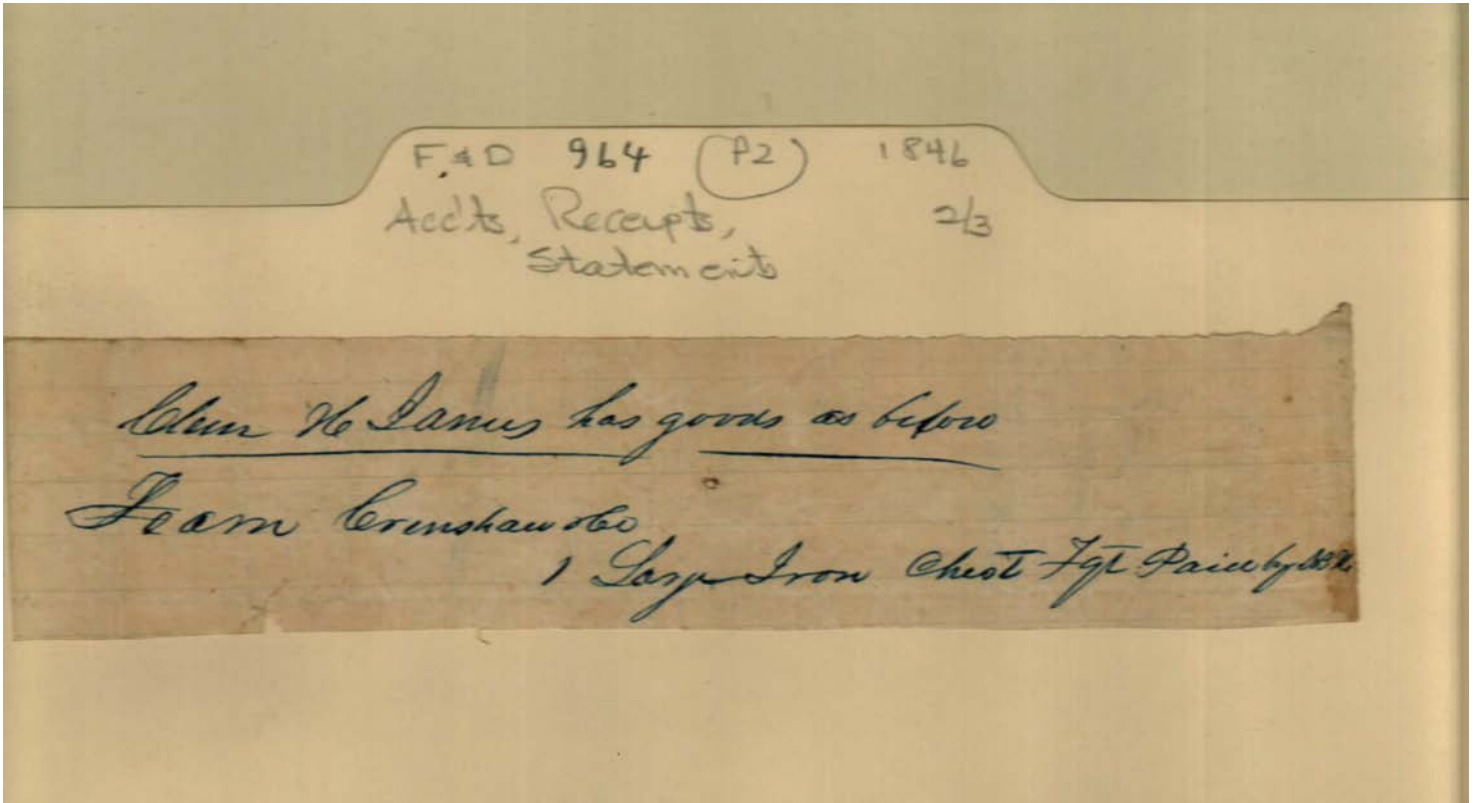 F. & D 964 (P2) 1846
Acc'ts, Receipts, 2/3
Statements
has goods as before
Crenshaw & Co
1 Large Iron Chest Fgt Paid by